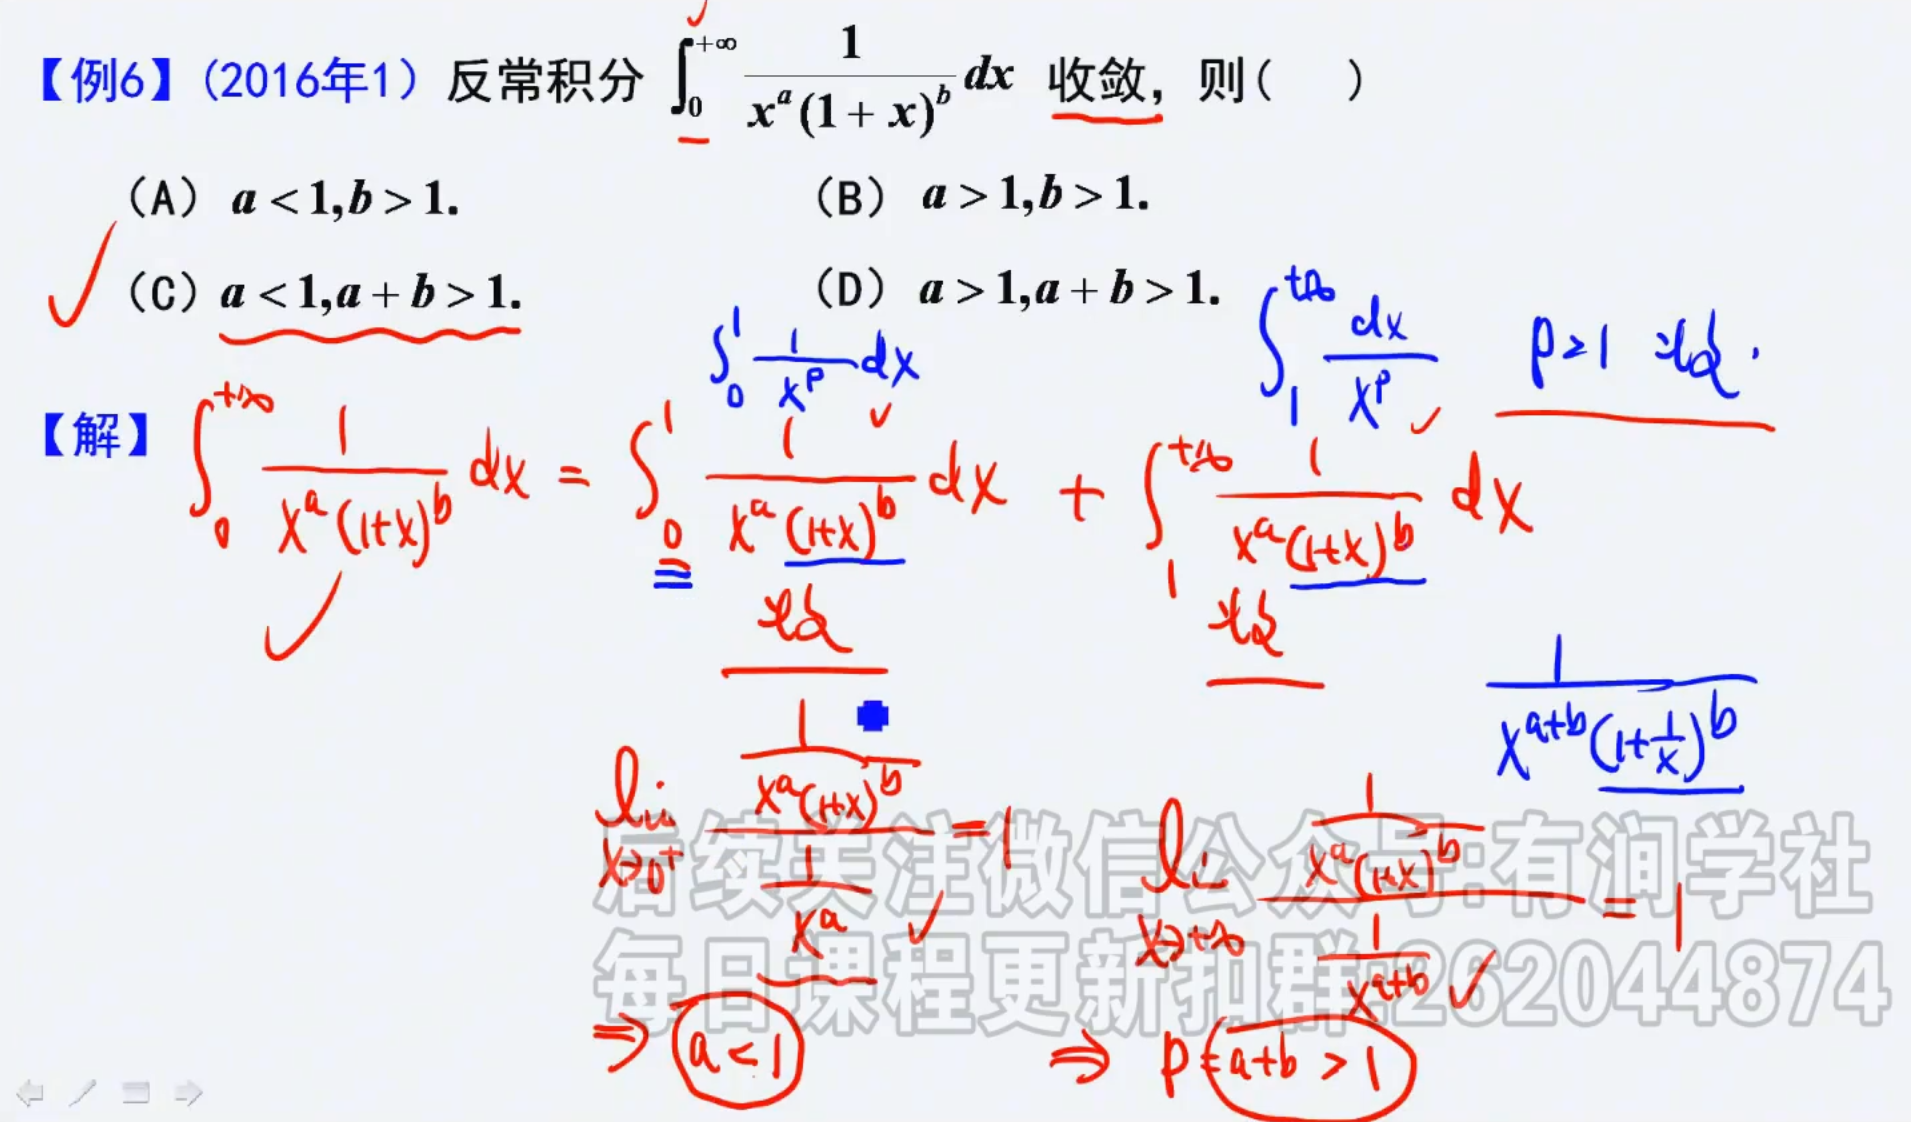 【例6】(2016年1) 反常积分 ∫₀^{+∞} 1/(x^a(1+x)^b) dx 收敛, 则( )
(A) a<1,b>1. (B) a>1,b>1.
(C) a<1,a+b>1. (D) a>1,a+b>1.
∫₀^1 1/x^p dx ∫₁^{+∞} dx/x^p p>1 收敛.
【解】 ∫₀^{+∞} 1/(x^a(1+x)^b) dx = ∫₀^1 1/(x^a(1+x)^b) dx + ∫₁^{+∞} 1/(x^a(1+x)^b) dx
收敛 收敛
1/(x^{a+b}(1+1/x)^b)
lim_{x→0^+} (1/(x^a(1+x)^b))/(1/x^a) = 1 lim_{x→+∞} (1/(x^a(1+x)^b))/(1/x^{a+b}) = 1
后续关注微信公众号:有润学社
每日课程更新扣群 262044874
⇒ a<1 ⇒ p=a+b>1